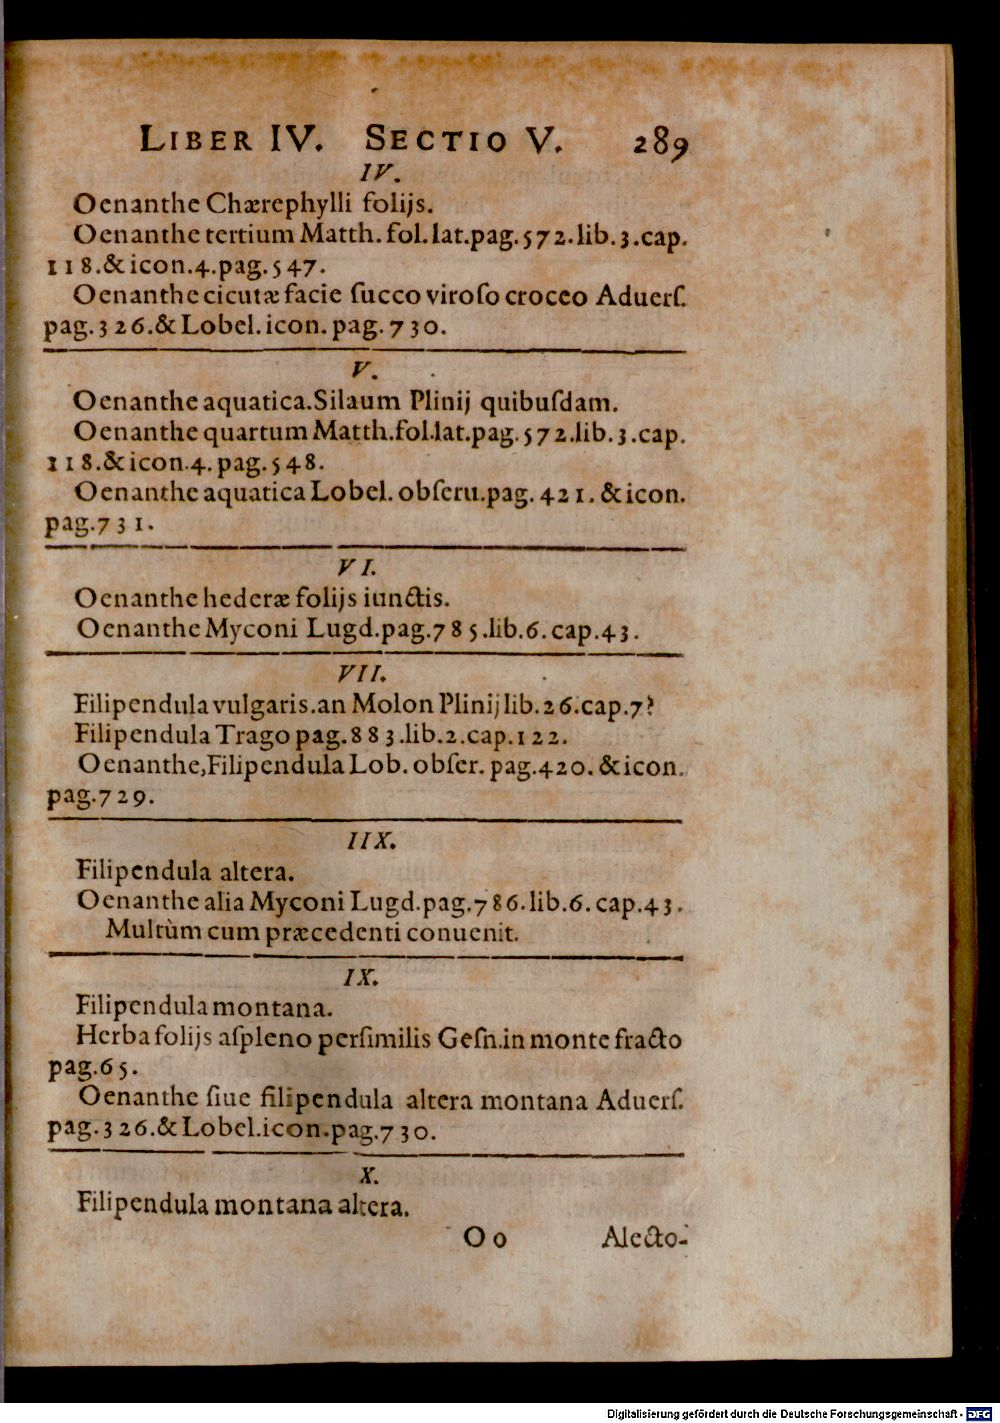 LIBER IV. SECTIO V. 289
IV.
Oenanthe Chærephylli folijs.
Oenanthe tertium Matth. fol. lat. pag. 572. lib. 3. cap.
118. & icon. 4. pag. 547.
Oenanthe cicutæ facie ſucco viroſo croceo Aduerſ.
pag. 326. & Lobel. icon. pag. 730.
V.
Oenanthe aquatica. Silaum Plinij quibuſdam.
Oenanthe quartum Matth. fol. lat. pag. 572. lib. 3. cap.
118. & icon. 4. pag. 548.
Oenanthe aquatica Lobel. obſeru. pag. 421. & icon.
pag. 731.
VI.
Oenanthe hederæ folijs iunctis.
Oenanthe Myconi Lugd. pag. 785. lib. 6. cap. 43.
VII.
Filipendula vulgaris. an Molon Plinij lib. 26. cap. 7?
Filipendula Trago pag. 883. lib. 2. cap. 122.
Oenanthe, Filipendula Lob. obſer. pag. 420. & icon.
pag. 729.
IIX.
Filipendula altera.
Oenanthe alia Myconi Lugd. pag. 786. lib. 6. cap. 43.
Multùm cum præcedenti conuenit.
IX.
Filipendula montana.
Herba folijs aſpleno perſimilis Geſn. in monte fracto
pag. 65.
Oenanthe ſiue filipendula altera montana Aduerſ.
pag. 326. & Lobel. icon. pag. 730.
X.
Filipendula montana altera.
Oo Alecto-
Digitalisierung gefördert durch die Deutsche Forschungsgemeinschaft - DFG